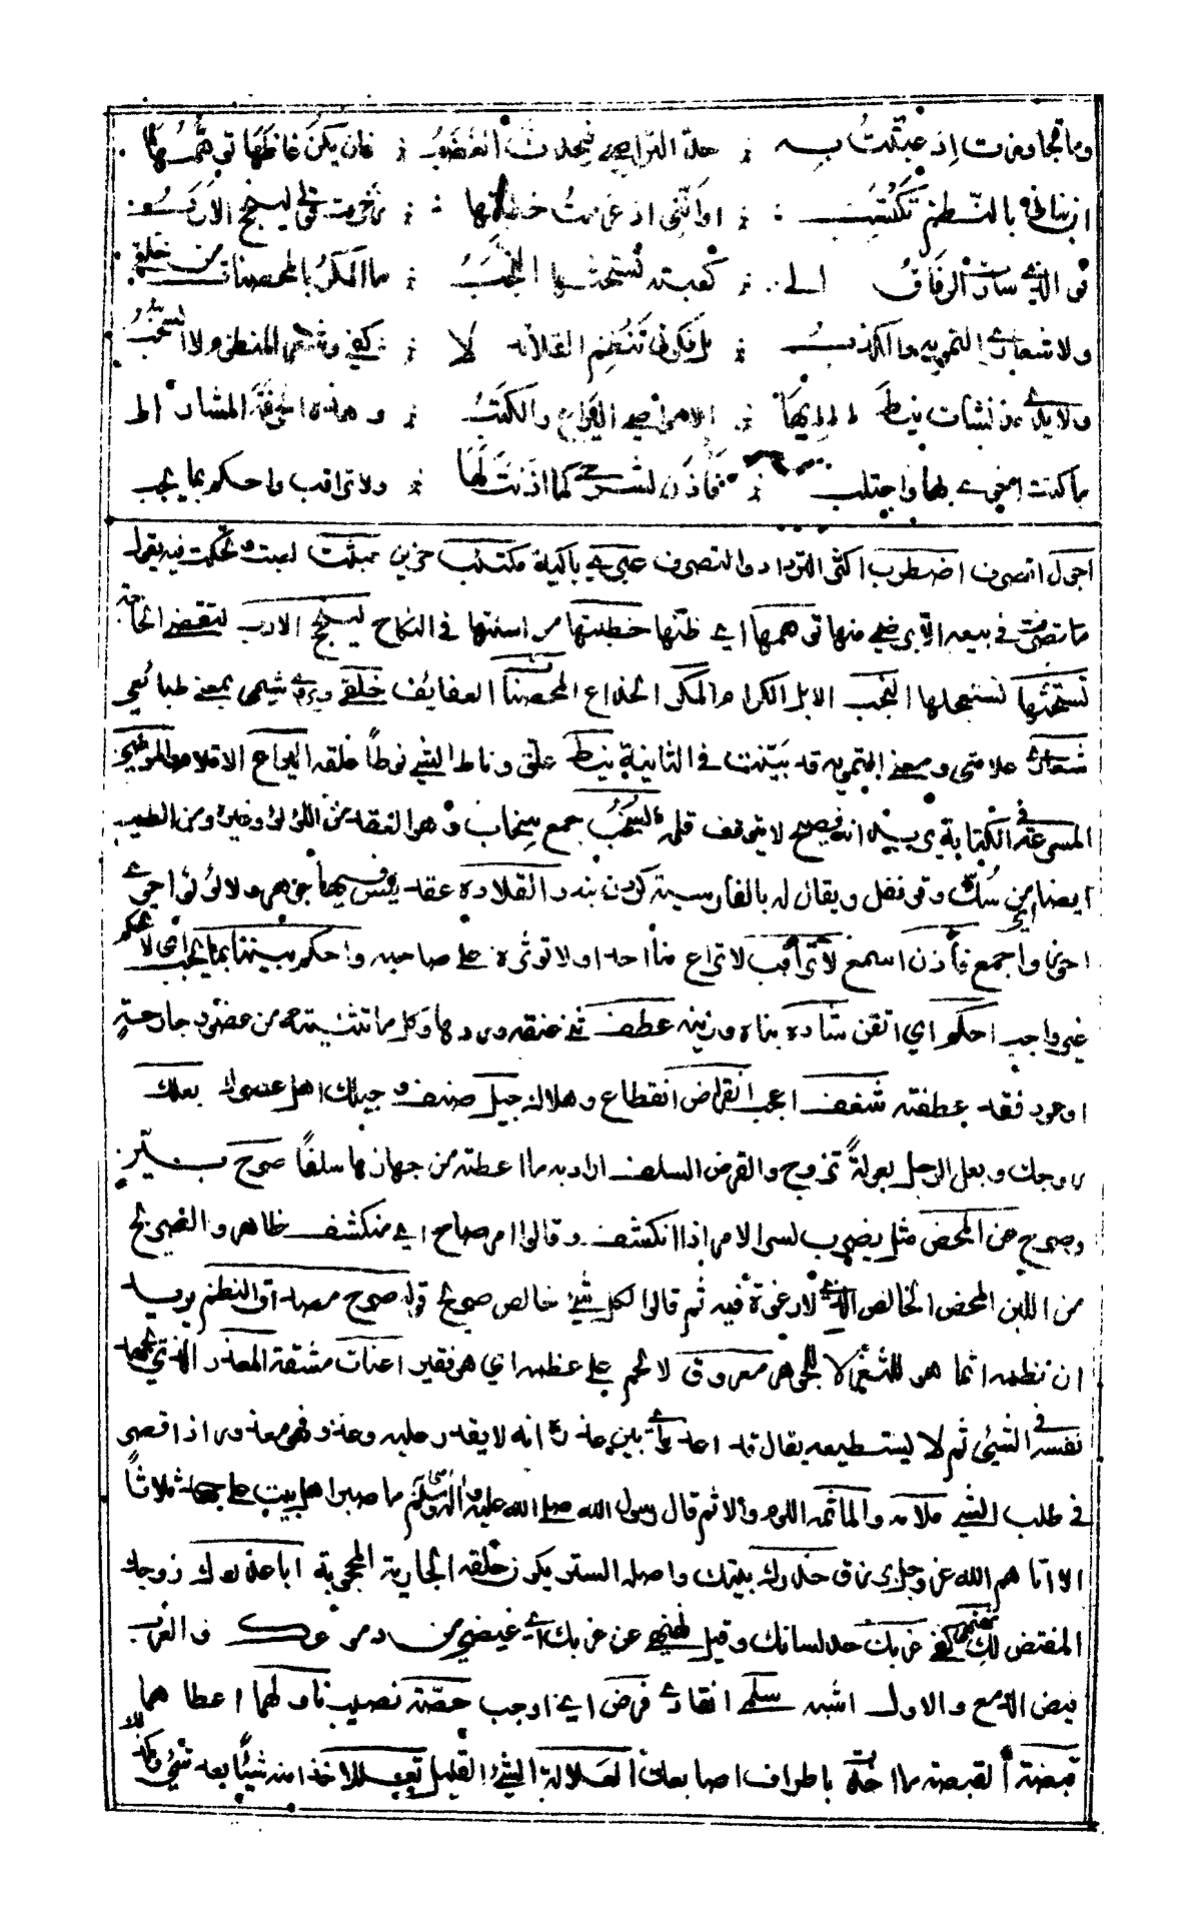 وما تجاوزت اذ عبثت به ؛ حد التراضي فيحدث الغضب ؛ فان يكن غاظها توهمها
ان بناني بالنظم تكتسب ؛ او انني اذ عزمت خطبتها ؛ زخرفت قولي لينجح الارب
فو الذي سارت الرفاق الى ؛ كعبته تستحثها النجب ؛ ما المكر بالمحصنات من خلقي
ولا شعاري التمويه والكذب ؛ بل فكرتي تنظم القلائد لا ؛ كفي وشعري المنظوم لا السخب
ولا يدي مذ نشأت نيط بها ؛ الا مواضي اليراع والكتب ؛ وهذه الحرفة المشار الى
ما كنت احوي بها واجتلب ؛ فأذن لشرحي كما اذنت لها ؛ ولا تراقب واحكم بما يجب
اجول اتصرف اضطرب اكثر الترداد والتصرف مكتئب حزين عبثت لعبت وتحكمت فيه بقولي
ما تصرفت في بيعه الا برضى منها توهمها اي ظنها خطبتها مراسلتها في النكاح لينجح الارب لتقضى الحاجة
تستحثها تستعجلها النجب الابل الكرام المكر الخداع المحصنات العفايف خلقي شيمى بمعنى طبائعي
شعاري علامتي ومعنى التمويه قد بينت في الثانية نيط علق وناط الشيء نوطا علقه اليراع الاقلام
في الكتابة يريد انه فصيح لا يتوقف قلمه السخب جمع سخاب وهو العقد من اللؤلؤ وغيره ومن الطيب
ايضا من سك وقرنفل ويقال له بالفارسية كردن بند والقلادة عقد ليس فيها جوهر ولا لؤلؤ احوي
احوز اجمع فأذن اسمع لا تراقب لا تراع منا احدا ولا تؤثره على صاحبه واحكم بيننا بما يجب اي لا تحكم
غير واجب احكم اي اتقن شاده بناه وزينه عطف ثنى عنقه وردها وكل ما تثنيته من عضو وجارحة
او عود فقد عطفته شغف اعجب انقراض انقطاع وهلاك جيل صنف وجيلك اهل عصرك بعلك
زوجك وبعل الرجل بعولة تزوج والقرض السلف اراد به ما اعطته من جهازها سلفا صرح بين
وصرح عن المحض مثل يضرب لسر الامر اذا انكشف وقالوا امر صراح اي منكشف ظاهر والصريح
من اللبن المحض الخالص الذي لا رغوة فيه ثم قالوا لكل شيء خالص صريح قوله صرح مصداق النظم يريد
ان نظمه انما هو للشعر لا للجوهر معروق لا لحم على عظمه اي هو فقير اعنات مشقة المعذر الذي يجهد
نفسه في الشيء ثم لا يستطيعه يقال قد اعذر انه لا يقدر عليه وعذر فهو معذر اذا قصر
في طلب الشيء ملامة والمأثمة اللوم والاثم قال رسول الله صلى الله عليه وآله وسلم ما صبر اهل بيت على جهد ثلاثا
الا اتاهم الله عز وجل برزق خدرك بيتك واصله الستر يكون خلفه الجارية المحجوبة ابا عذرك زوجك
المفتض لك نهنهي كفي غربك حد لسانك وقيل نهنهي عن غربك اي غيضي من دموعك والغرب
فيض الدمع والاول اشبه سلمي انقادي فرض اي اوجب حصة نصيب ناولهما اعطاهما
قبضة القبصة ما اخذت باطراف اصابعك العلالة الشيء القليل تعللا اخذا منه شيئا بعد شيء